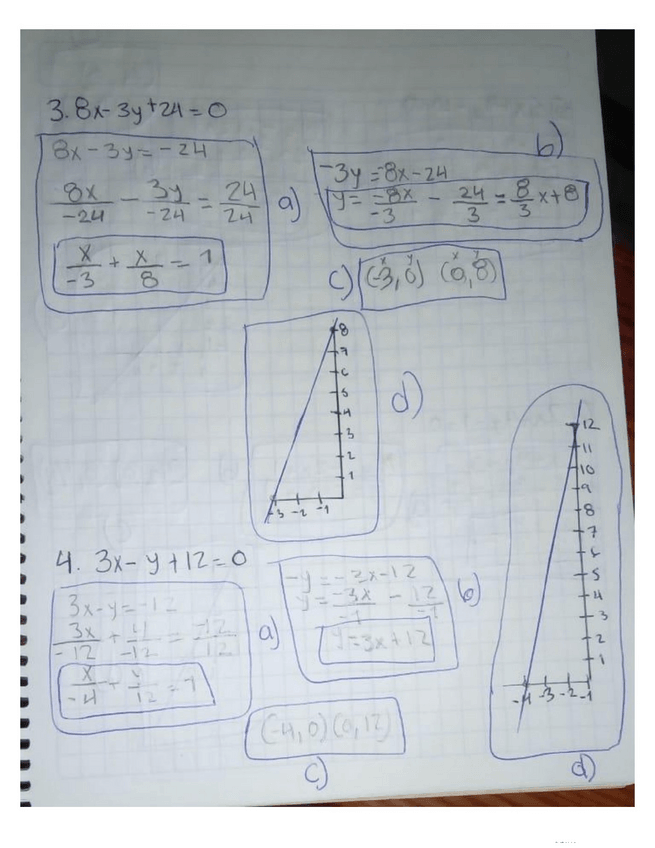 3. 8x-3y+24=0
8x-3y=-24
8x/-24 - 3y/-24 = 24/24
x/-3 + x/8 = 1
a)
b)
-3y=8x-24
y= -8x/-3 - 24/3 = 8/3 x+8
c)
x y x y
(-3,0) (0,8)
8
7
6
5
4
3
2
1
-3 -2 -1
d)
4. 3x-y+12=0
3x-y=-12
3x/-12 + y/-12 = -12/12
x/-4 + y/12 = 1
a)
-y=-3x-12
y= -3x/-1 - 12/-1
y=3x+12
b)
(-4,0)(0,12)
c)
12
11
10
9
8
7
6
5
4
3
2
1
-4 -3 -2 -1
d)